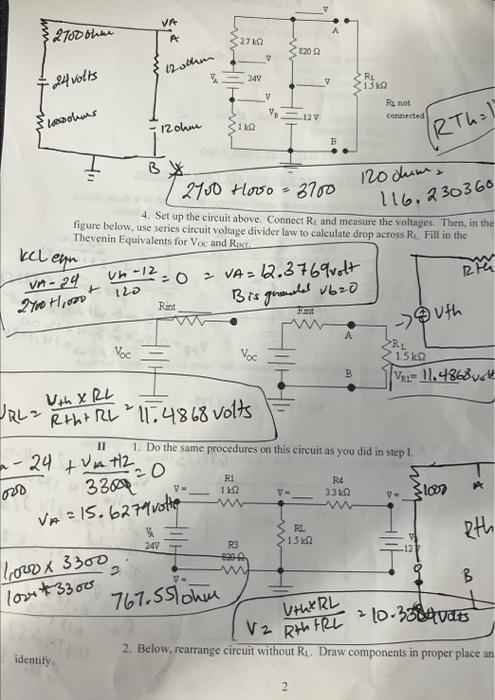 VA
A
2700 ohms
24 volts
1000 ohms
12 ohm
B
V
A
2.7 kΩ
820 Ω
V
V
VA
24V
V
VB
12 V
1 kΩ
RL
1.5 kΩ
RL not
connected
B
RTh =
2700 + 1000 = 3700
120 ohms =
116.230360
4. Set up the circuit above. Connect RL and measure the voltages. Then, in the
figure below, use series circuit voltage divider law to calculate drop across RL. Fill in the
Thevenin Equivalents for VOC and RINT.
KCL eqn
VA - 24 / 2700 + 1,000 + VA - 12 / 120 = 0 = VA = 12.3769 volt
B is grounded Vb = 0
Rth
Vth
Rint
VOC
Rint
VOC
A
B
RL
1.5 kΩ
VRL = 11.4868 volt
VRL = Vth x RL / Rth + RL = 11.4868 volts
II 1. Do the same procedures on this circuit as you did in step I.
- 24 + VA + 12 / 3300 = 0
VA = 15.6279 volts
V =
R1
1 kΩ
V =
R4
3.3 kΩ
V =
1000
A
VA
24V
RL
1.5 kΩ
12V
Rth
R3
820 Ω
V =
B
1,000 x 3300 / 1000 + 3300 =
767.551 ohm
V = Vth x RL / Rth + RL = 10.3384 volts
2. Below, rearrange circuit without RL. Draw components in proper place an
identify.
2